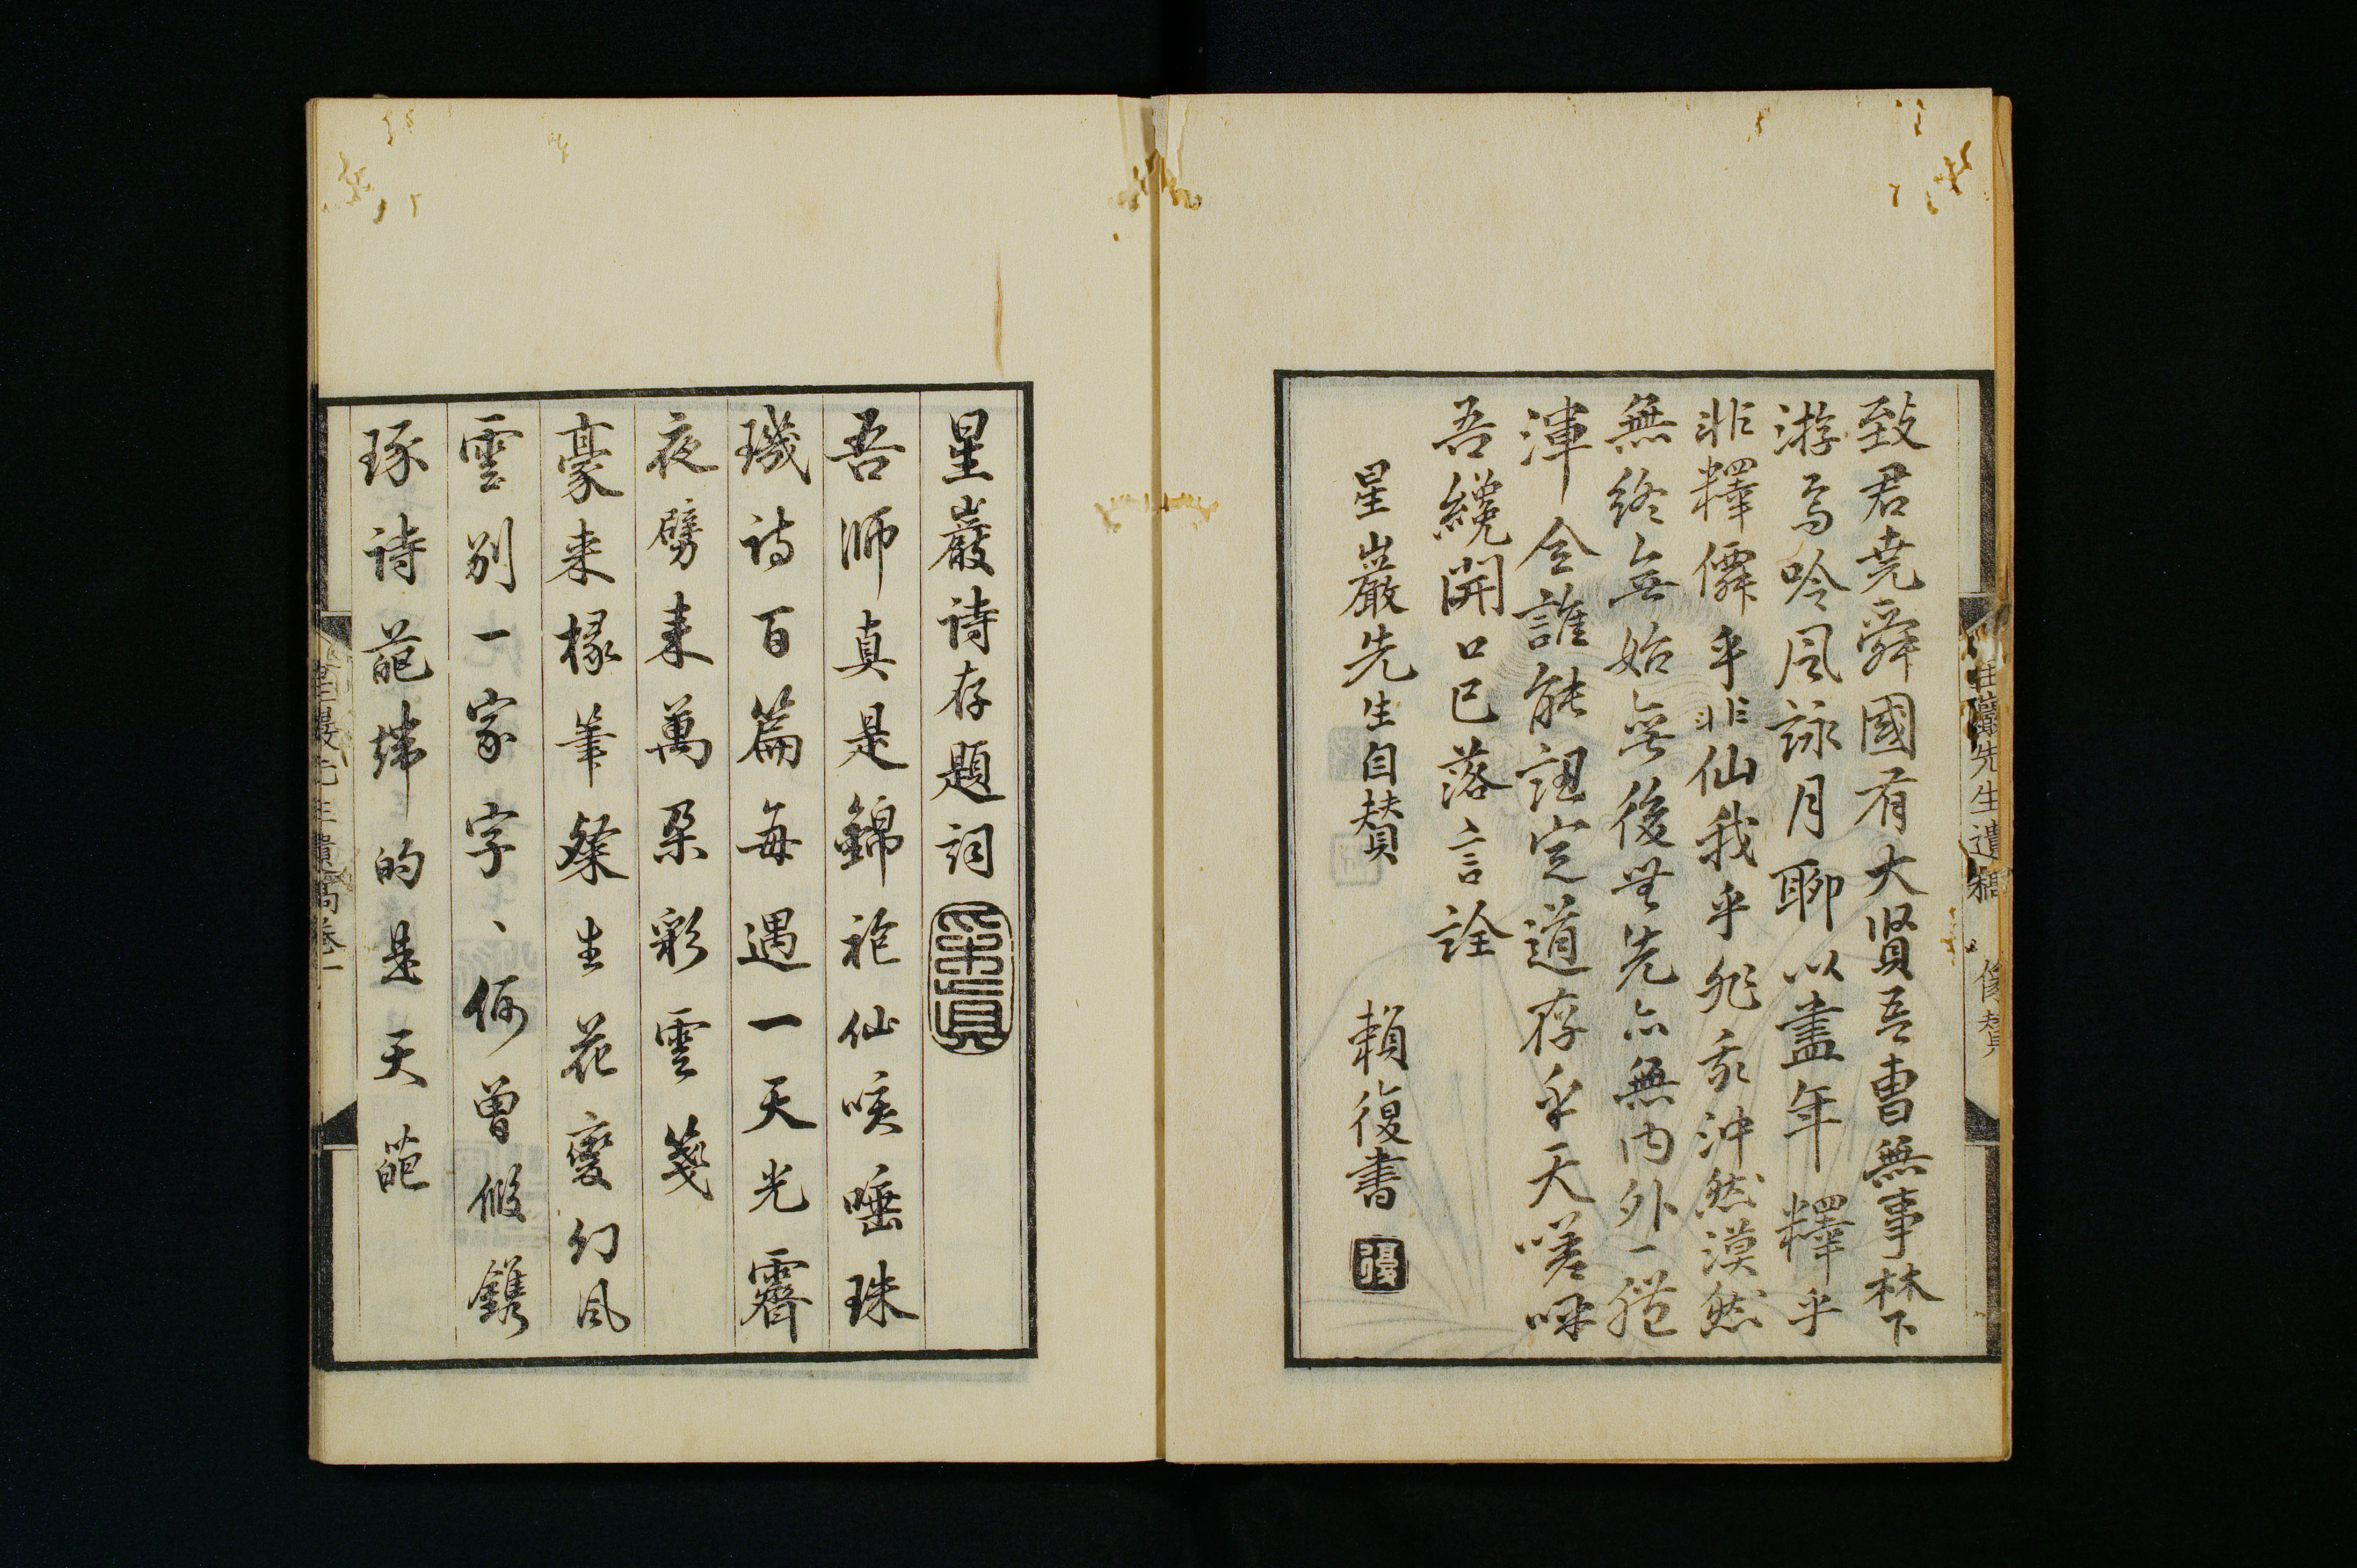 致君堯舜國有大賢吾曹無事林下
游焉吟風詠月聊以盡年釋乎
非釋儒乎非仙我乎非我沖然漠然
無終無始無後無先亦無內外一體
渾全誰能認定道存乎天嗟呼
吾纔開口已落言詮
星巖先生自贊 賴復書
復
星巖先生遺稿 自贊
星巖詩存題詞
吾師真是錦袍仙咳唾珠
璣詩百篇每遇一天光霽
夜劈来萬朵彩雲箋
豪来椽筆粲生花變幻風
雲別一家字字何曾假鐫
琢詩葩婥的是天葩
星巖先生遺稿卷一